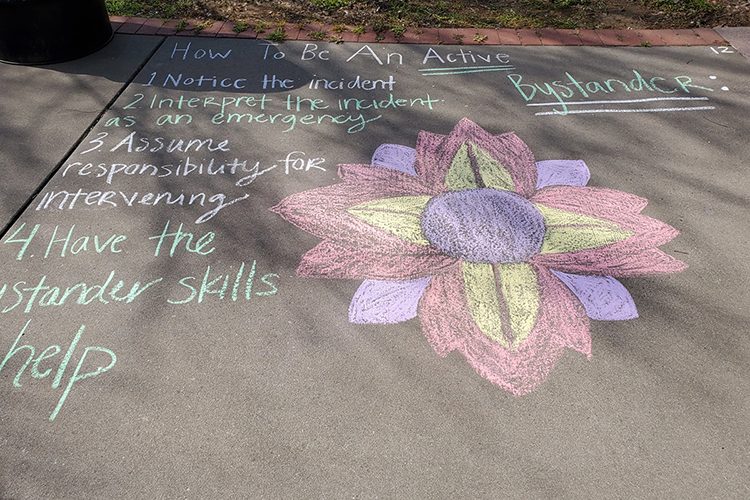 How To Be An Active
Bystander:
1 Notice the incident
2 Interpret the incident
as an emergency
3 Assume
responsibility for
intervening
4. Have the
ystander skills
help